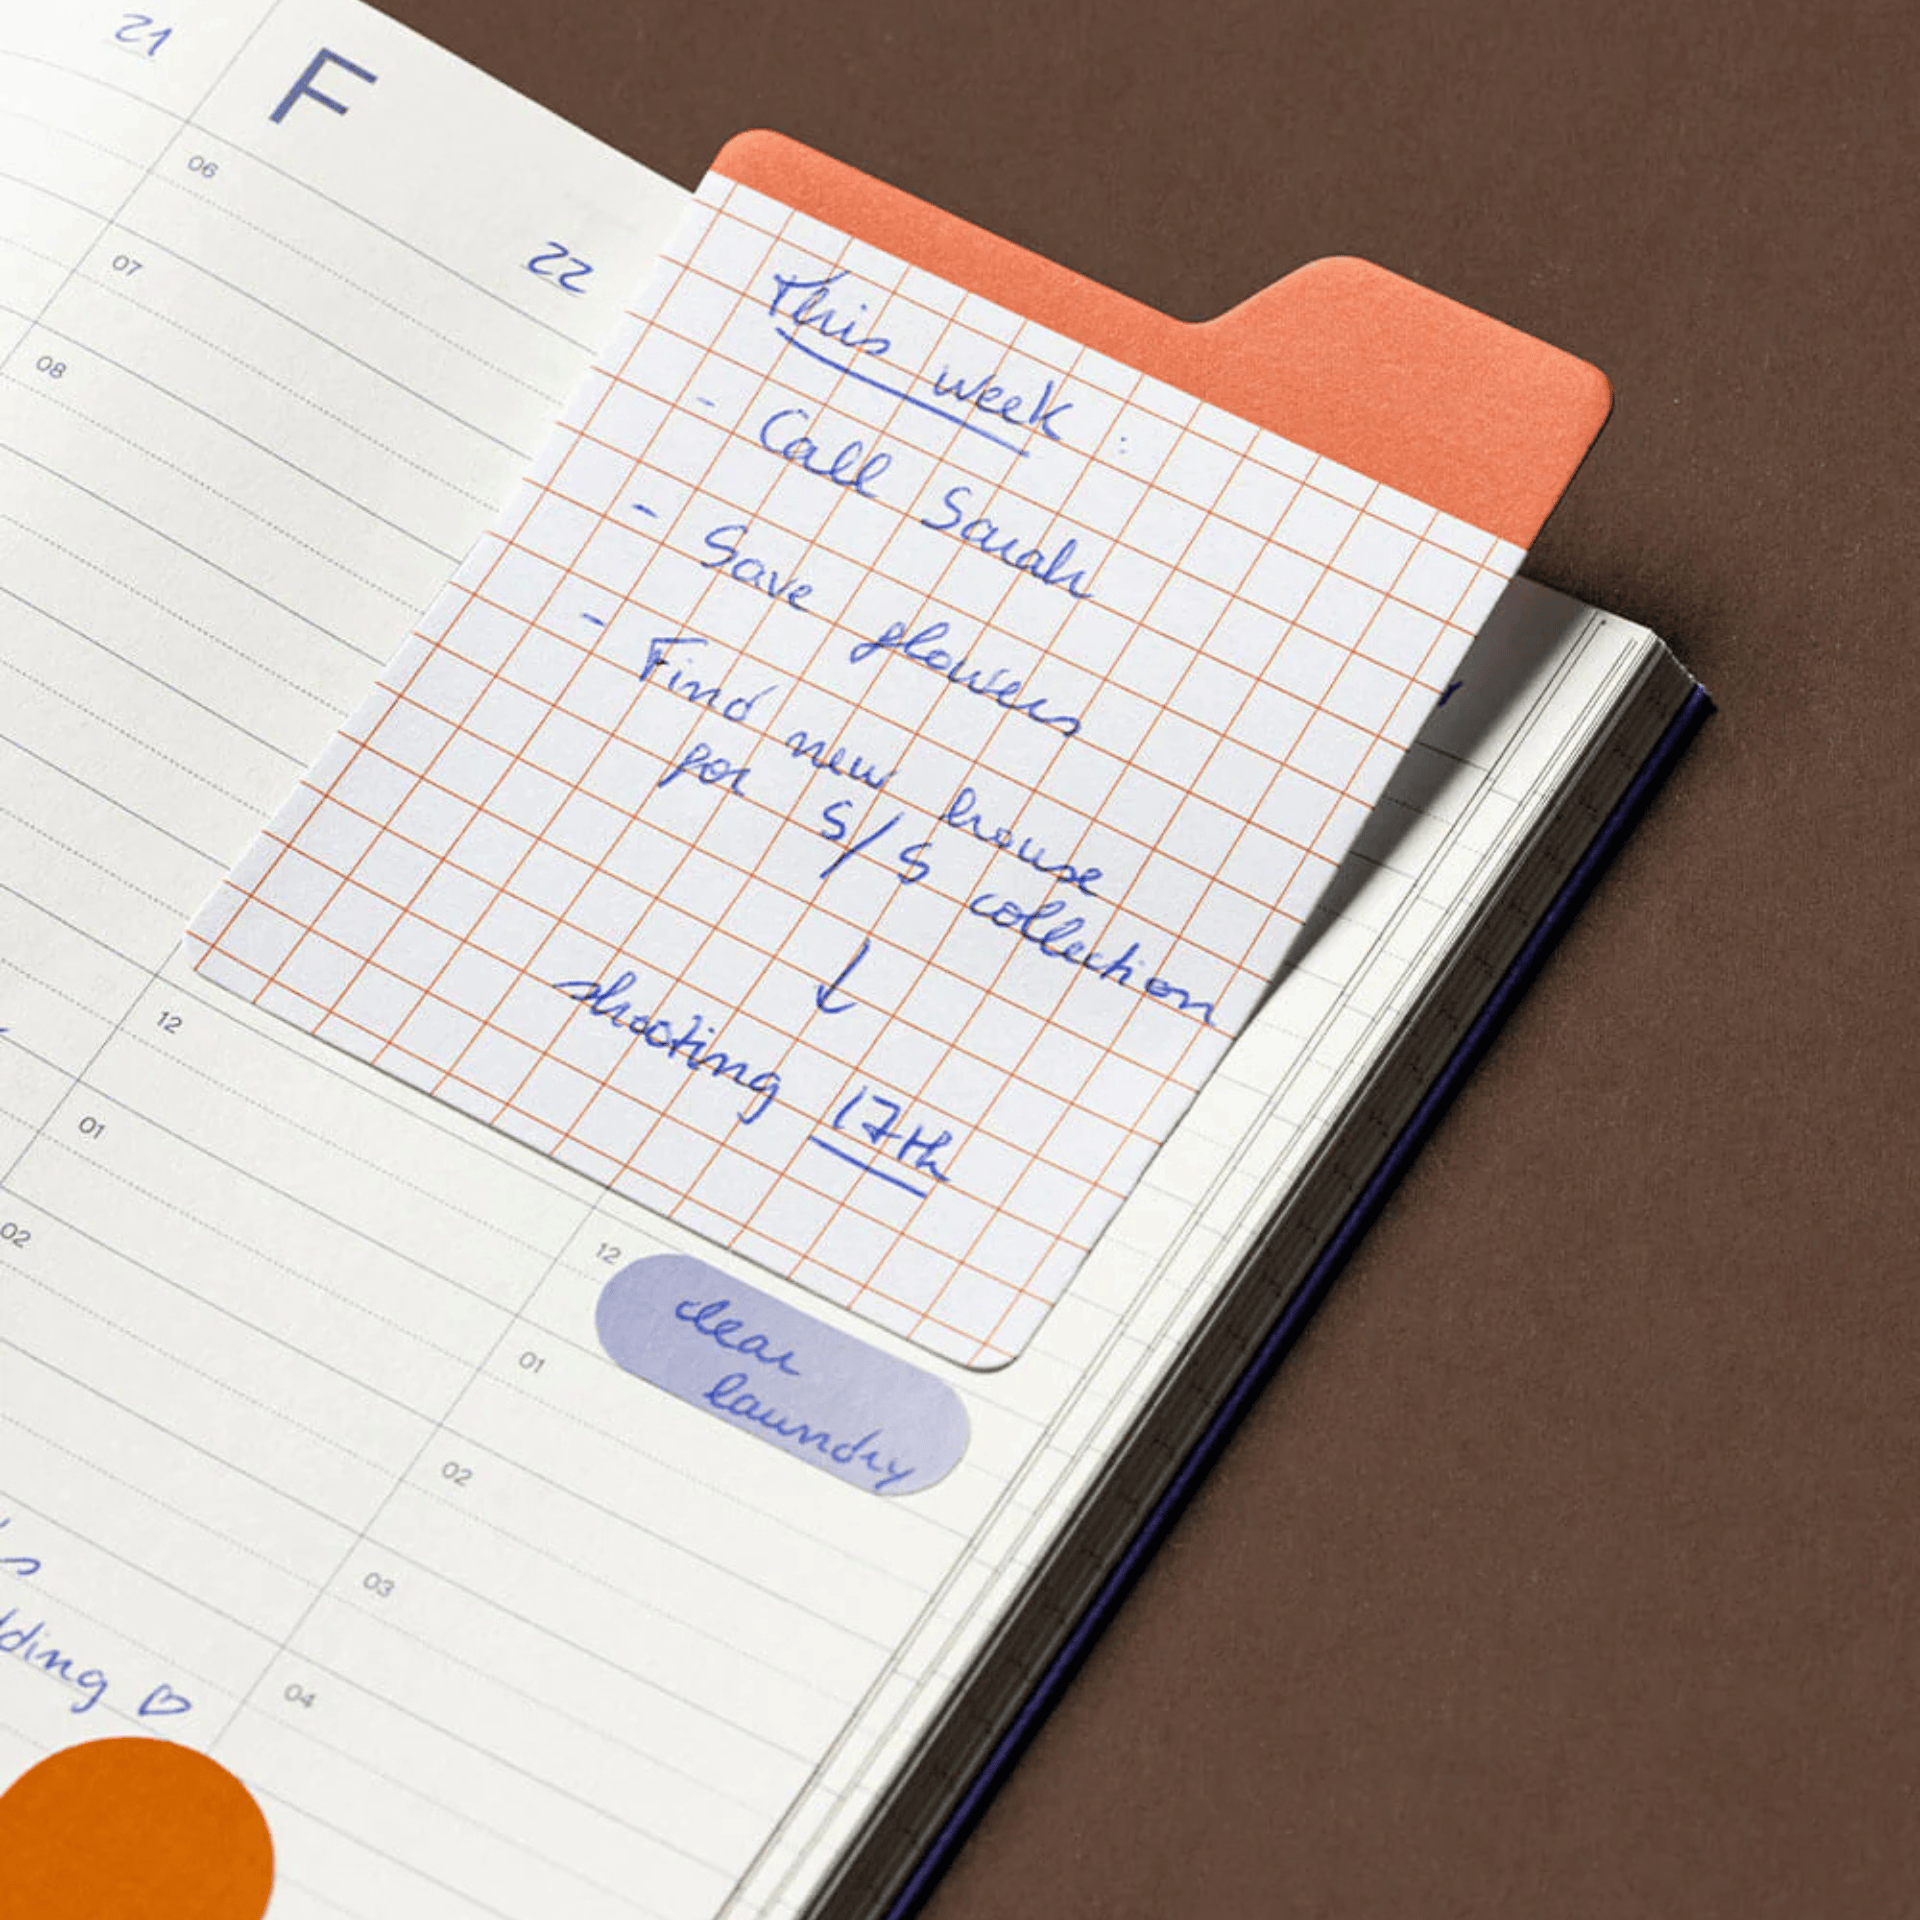 21
F
22
06
07
08
This week :
- Call Sarah
- Save flowers
- Find new house
for S/S collection
↓
shooting 17th
12
01
02
12
01
02
03
04
clear
laundry
dding ♡